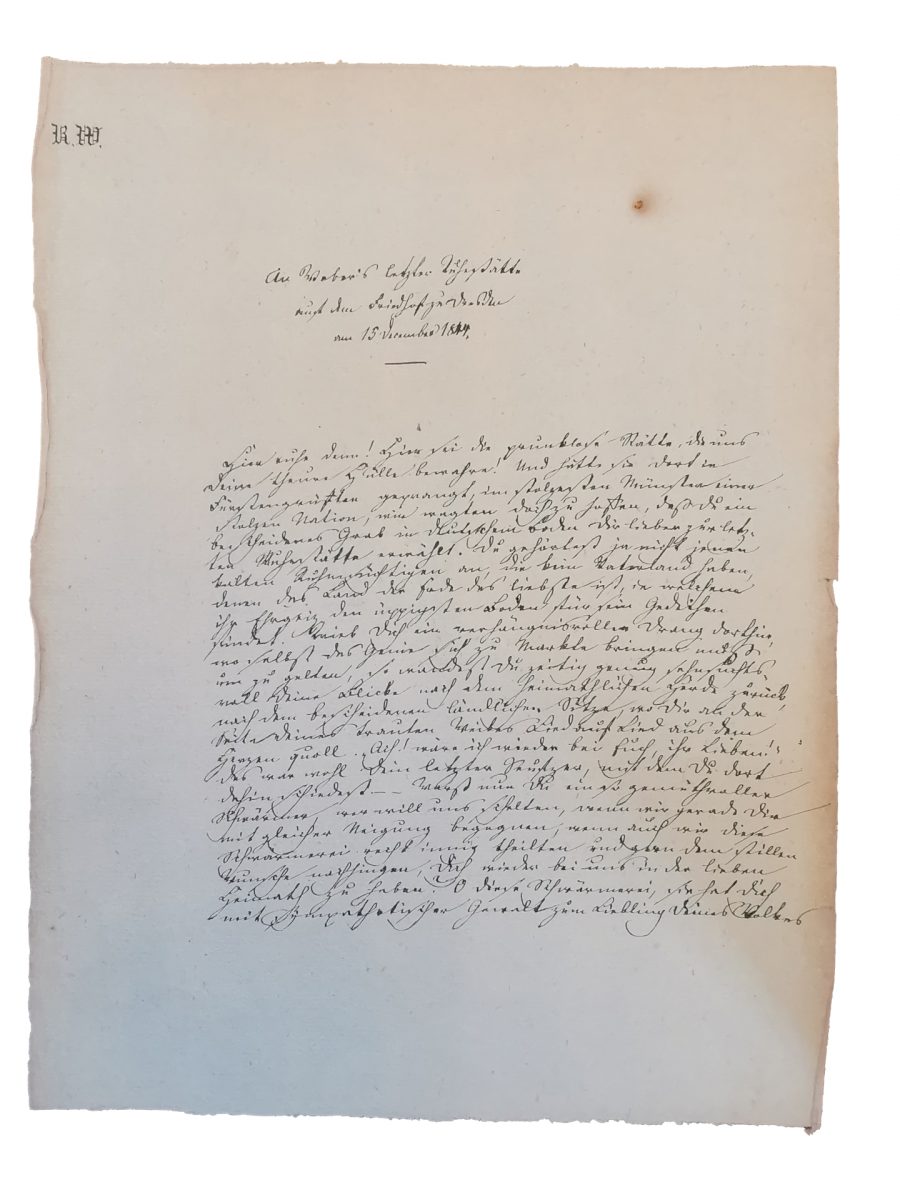 R. W.
An Weber's letzter Ruhestätte
auf dem Friedhof zu Dresden
am 15 December 1844.
Hier ruhe denn! Hier sei die prunklose Stätte, die uns
Deine theure Hülle bewahre! Und hätte sie dort in
Fürstengrüften geprangt, im stolzesten Münster einer
stolzen Nation, wir wagten doch zu hoffen, daß Du ein
bescheidenes Grab in deutschem Boden Dir lieber zur letz-
ten Ruhestätte erwählt. Du gehörtest ja nicht jenen
kalten Ruhmsüchtigen an, die kein Vaterland haben,
denen das Land der Erde das liebste ist, in welchem
ihr Ehrgeiz den üppigsten Boden für sein Gedeihen
findet. Trieb Dich ein verhängnisvoller Drang dorthin,
wo selbst das Genie sich zu Markte bringen muß,
um zu gelten, so wandtest Du zeitig genug sehnsuchts-
voll Deine Blicke nach dem heimathlichen Herde zurück,
nach dem bescheidenen ländlichen Sitze, wo Dir an der
Seite Deines trauten Weibes Lied auf Lied aus dem
Herzen quoll. „Ach! wäre ich wieder bei Euch, ihr Lieben!"
das war wohl Dein letzter Seufzer, mit dem Du dort
dahin schiedest — — Warst nun Du ein so gemüthvoller
Schwärmer, wer will uns schelten, wenn wir gerade Dir
mit gleicher Neigung begegnen, wenn auch wir diese
Schwärmerei recht innig theilten und gern dem stillen
Wunsche nachhingen, Dich wieder bei uns in der lieben
Heimath zu haben? O diese Schwärmerei, sie hat Dich
mit sympathetischer Gewalt zum Liebling Deines Volkes